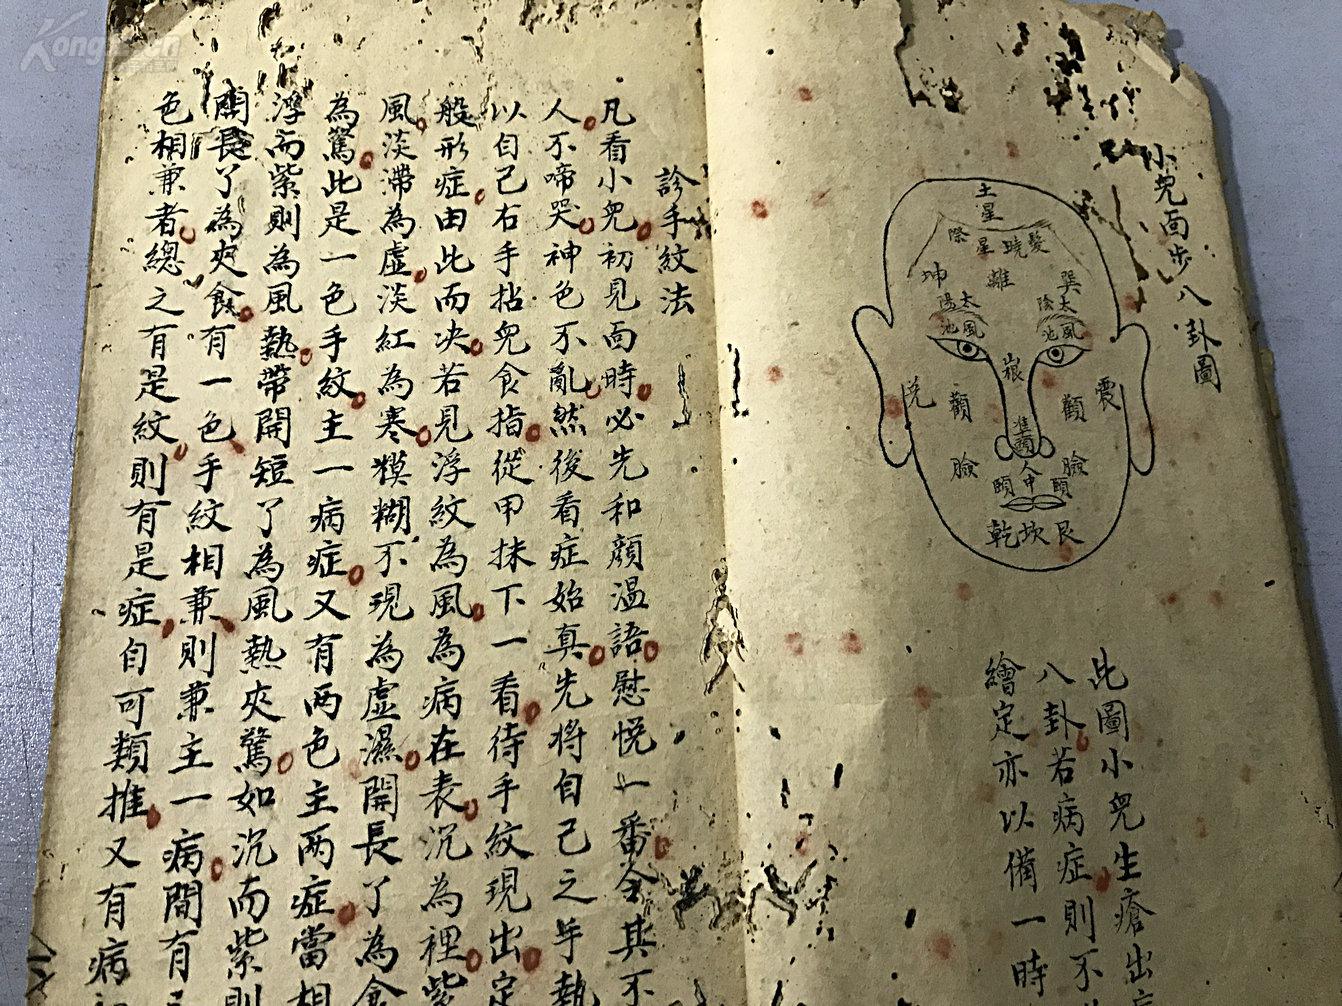 小兒面步八卦圖
土星
髮
曉星
際
巽
離
坤
太陰
太陽
風池
風池
山根
震
顴
顴
兌
準頭
臉
人中
臉
頤
頤
艮
坎
乾
此圖小兒生瘡出
八卦若病症則不
繪定亦以備一時
診手紋法
凡看小兒初見面時必先和顏溫語慰悅一番令其不
人不啼哭神色不亂然後看症始真先將自己之手執
以自己右手拈兒食指從甲抹下一看待手紋現出定
般形症由此而决若見浮紋為風為病在表沉為裡紫
風淡滯為虛淡紅為寒糢糊不現為虛濕開長了為食
為驚此是一色手紋主一病症又有兩色主兩症當相
浮而紫則為風熱帶開短了為風熱夾驚如沉而紫則
開長了為夾食有一色手紋相兼則兼主一病間有
色相兼者總之有是紋則有是症自可類推又有病